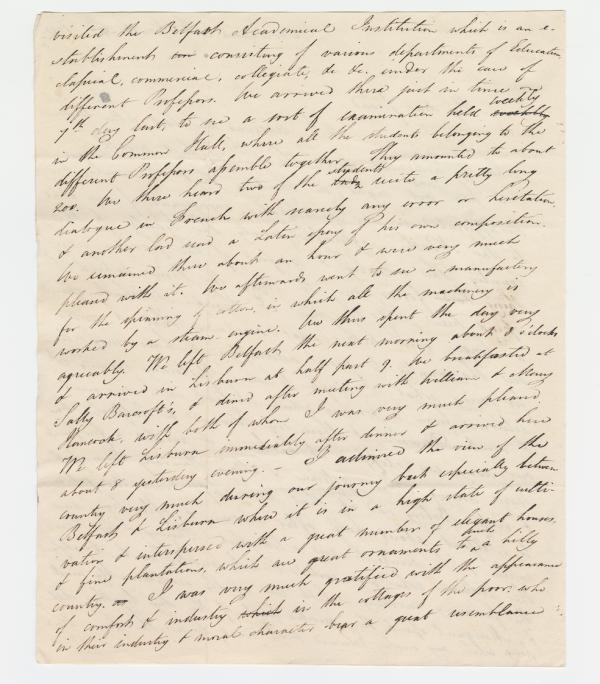 visited the Belfast Academical Institution which is an e-
stablishment consisting of various departments of Education,
classical, commercial, collegiate, &c &c. under the care of
different Professors. We arrived there just in time on
7th day last, to see a sort of examination held weekly
in the Common Hall, where all the students belonging to the
different Professors assemble together. They amounted to about
200. We there heard two of the students recite a pretty long
dialogue in French with scarcely any error or hesitation,
& another lad read a Latin essay of his own composition.
We remained there about an hour & were very much
pleased with it. We afterwards went to see a manufactory
for the spinning of cotton, in which all the machinery is
worked by a steam engine. We thus spent the day very
agreeably. We left Belfast the next morning about 8 o'clock
& arrived in Lisburn at half past 9. We breakfasted at
Sally Barcroft's, & dined after meeting with William & Mary
Hancock, with both of whom I was very much pleased.
We left Lisburn immediately after dinner & arrived here
about 8 yesterday evening. – I admired the view of the
country very much during our journey back especially between
Belfast & Lisburn where it is in a high state of culti-
vation & interspersed with a great number of elegant houses,
& fine plantations, which are great ornaments to such a hilly
country. I was very much gratified with the appearance
of comfort & industry which in the cottages of the poor, who
in their industry & moral character bear a great resemblance